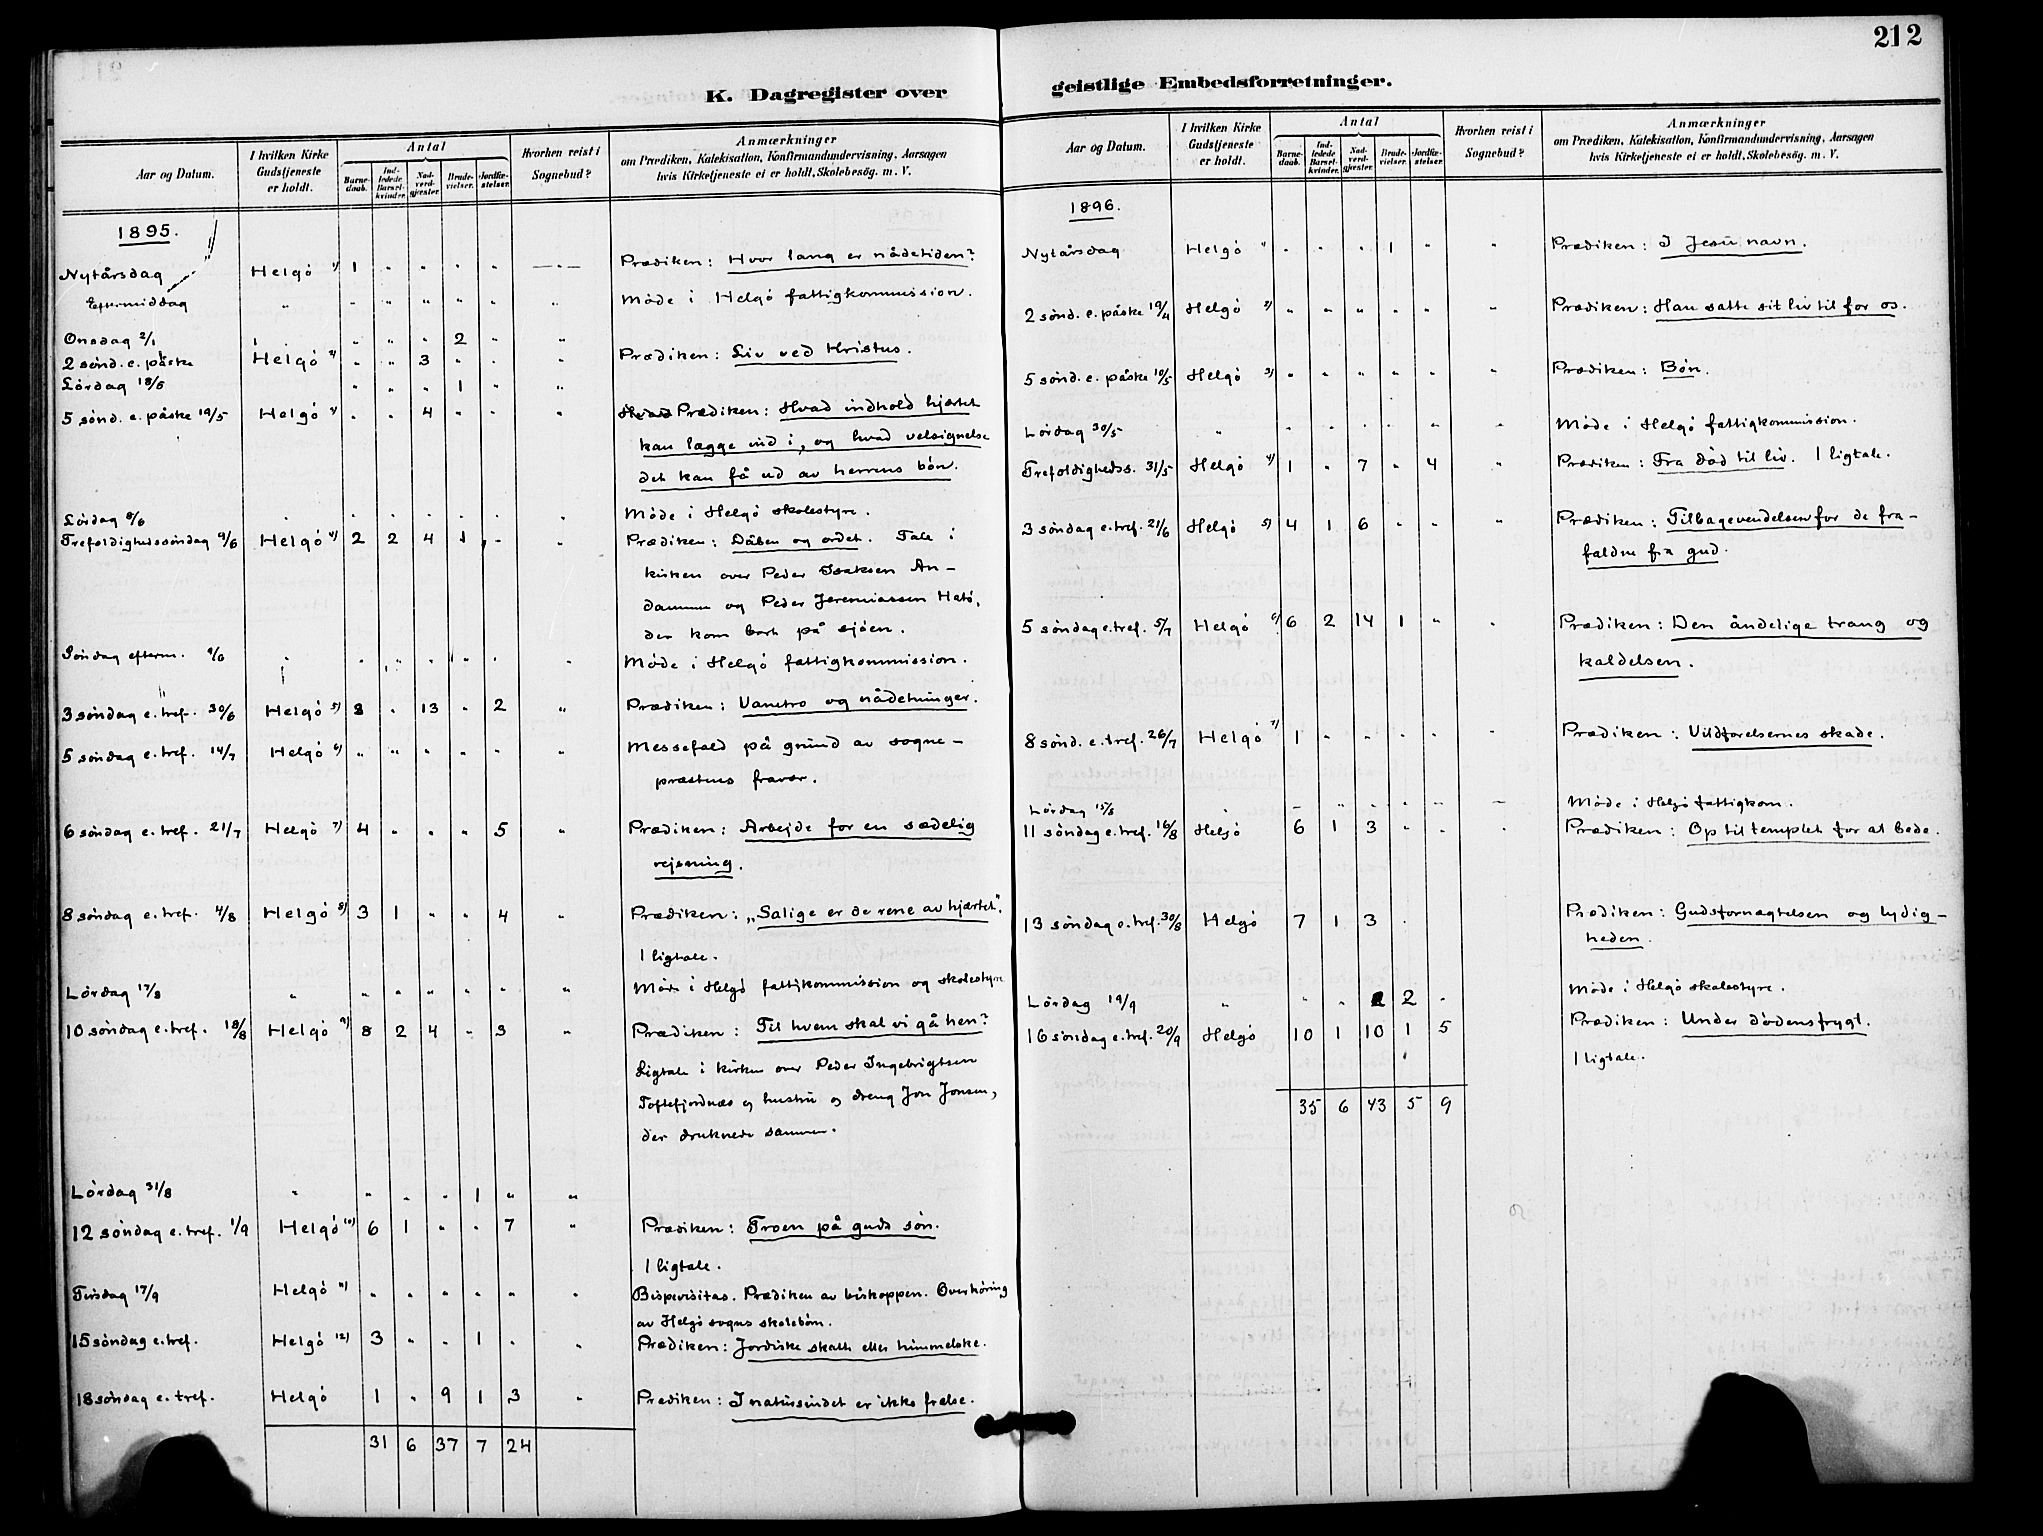 212
K. Dagregister over
Aar og Datum.
I hvilken Kirke Gudstjeneste er holdt.
Antal
Barne-daab.
Ind-ledede Barsel-kvinder.
Nad-verd-gjæster.
Brude-vielser.
Jordfæ-stelser.
Hvorhen reist i Sognebud?
Anmærkninger
om Prædiken, Katekisation, Konfirmandundervisning, Aarsagen
hvis Kirketjeneste ei er holdt, Skolebesøg. m. V.
1895.
Nytårsdag Helgö 1) 1 " " " " — " — Prædiken: Hvor lang er nådetiden?
Eftermiddag " " " " " " " Møde i Helgö fattigkommission.
Onsdag 2/1 " " " 2 " "
2 sönd. e. påske Helgö 2) " " 3 " " " Prædiken: Liv ved Kristus.
Lördag 18/5 " " " 1 " "
5 sönd. e. påske 19/5 Helgö 3) " " 4 " " " Prædiken: Hvad indhold hjærtet
kan lægge ind i, og hvad velsignelse
det kan få ud av herrens bön.
Lördag 8/6 " " " " " " " Möde i Helgö skolestyre.
Trefoldighedssöndag 9/6 Helgö 4) 2 2 4 1 " " Prædiken: Dåben og ordet. Tale i
kirken over Peder Isaksen An-
dammen og Peder Jeremiassen Hatö,
der kom bort på sjöen.
Söndag efterm. 9/6 " " " " " " " Möde i Helgö fattigkommission.
3 söndag e. tref. 30/6 Helgö 5) 3 " 13 " 2 " Prædiken: Vantro og nådetninger.
5 söndag e. tref. 14/7 Helgö 6) " " " " " " Messefald på grund av sogne-
præstens fravær.
6 söndag e. tref. 21/7 Helgö 7) 4 " " " 5 " Prædiken: Arbejde for en sædelig
rejsning.
8 söndag e. tref. 4/8 Helgö 8) 3 1 " " 4 " Prædiken: „Salige er de rene av hjærtet".
1 ligtale.
Lördag 17/8 " " " " " " " Möde i Helgö fattigkommission og skolestyre
10 söndag e. tref. 18/8 Helgö 9) 8 2 4 " 3 " Prædiken: Til hvem skal vi gå hen?
Ligtale i kirken over Peder Ingebrigtsen
Toftefjordnæs og hustru og dreng Jon Jonsen,
der druknede sammen.
Lördag 31/8 " " " " 1 " "
12 söndag e. tref. 1/9 Helgö 10) 6 1 " " 7 " Prædiken: Troen på guds sön.
1 ligtale.
Tirsdag 17/9 Helgö 11) " " " " " " Bispevisitas. Prædiken av biskoppen. Overhöring
av Helgö sogns skolebörn.
15 söndag e. tref. Helgö 12) 3 " " 1 " " Prædiken: Jordiske skatte eller himmelske.
18 söndag e. tref. Helgö 1 " 9 1 3 " Prædiken: I natursindet er ikke frelse.
31 6 37 7 24
geistlige Embedsforretninger.
Aar og Datum.
I hvilken Kirke Gudstjeneste er holdt.
Antal
Barne-daab.
Ind-ledede Barsel-kvinder.
Nad-verd-gjæster.
Brude-vielser.
Jordfæ-stelser.
Hvorhen reist i Sognebud?
Anmærkninger
om Prædiken, Katekisation, Konfirmandundervisning, Aarsagen
hvis Kirketjeneste ei er holdt, Skolebesøg. m. V.
1896.
Nytårsdag Helgö " " " " 1 " " Prædiken: I Jesu navn.
2 sönd. e. påske 19/4 Helgö 2) " " " " " " Prædiken: Han satte sit liv til for os.
5 sönd. e. påske 10/5 Helgö 3) " " " " " " Prædiken: Bön.
Lördag 30/5 " " " " " " " Möde i Helgö fattigkommission.
Trefoldighedss. 31/5 Helgö 4) 1 " 7 " 4 " Prædiken: Fra död til liv. 1 ligtale.
3 söndag e. tref. 21/6 Helgö 5) 4 1 6 " " " Prædiken: Tilbagevendelsen for de fra-
faldne fra gud.
5 söndag e. tref. 5/7 Helgö 6) 6 2 14 1 " " Prædiken: Den åndelige trang og
kaldelsen.
8 sönd. e. tref. 26/7 Helgö 7) 1 " " " " " Prædiken: Vildførelsernes skade.
Lördag 15/8 " " " " " " " Möde i Helgö fattigkom.
11 söndag e. tref. 16/8 Helgö 6 1 3 " " " Prædiken: Op til templet for at bede.
13 söndag e. tref. 30/8 Helgö 7 1 3 " Prædiken: Gudsfornægtelsen og lydig-
heden.
Lördag 19/9 " " " 2 " Möde i Helgö skolestyre.
16 söndag e. tref. 20/9 Helgö 10 1 10 1 5 Prædiken: Under dödensfrygt.
1 ligtale.
35 6 43 5 9